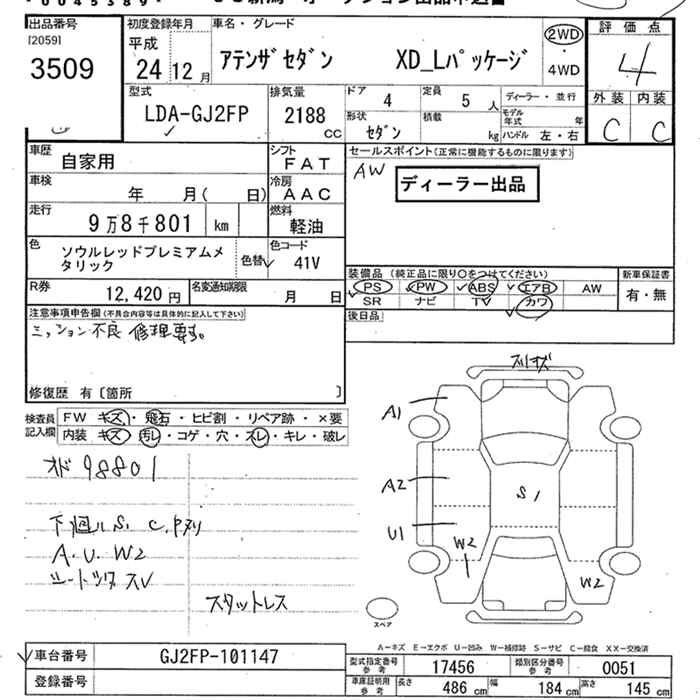 0045389
出品番号
[2059]
3509
初度登録年月
平成
24 12 月
車名・グレード
アテンザセダン XD_Lパッケージ
2WD
4WD
評価点
4
外装 内装
C C
型式
LDA-GJ2FP
排気量
2188 CC
ドア 4 定員 5 人
ディーラー・並行
形状 セダン 積載 kg
モデル年式 年
ハンドル 左・右
車歴 自家用
シフト FAT
車検 年 月( 日)
冷房 AAC
走行 9万8千801 km
燃料 軽油
色 ソウルレッドプレミアムメタリック
色替 色コード 41V
R券 12,420 円
名変通知期限 月 日
セールスポイント(正常に機能するものに限ります)
AW
ディーラー出品
装備品 (純正品に限り○をつけてください)
PS PW ABS エアB AW
SR ナビ TV カワ
新車保証書
有・無
後日品
注意事項申告欄(不具合内容等は具体的に記入して下さい)
ミッション不良 修理要す。
修復歴 有〔箇所 〕
検査員記入欄
FW キズ・飛石・ヒビ割・リペア跡・×要
内装 キズ・汚レ・コゲ・穴・スレ・キレ・破レ
オド 98801
A.U.W2
スタットレス
A1
A2
U1
S1
W2
W2
スペア
A=キズ E=エクボ U=凹み W=補修跡 S=サビ C=腐食 XX=交換済
車台番号 GJ2FP-101147
登録番号
型式指定番号 参考 17456
類別区分番号 参考 0051
車庫証明用 参考 長さ 486 cm 幅 184 cm 高さ 145 cm